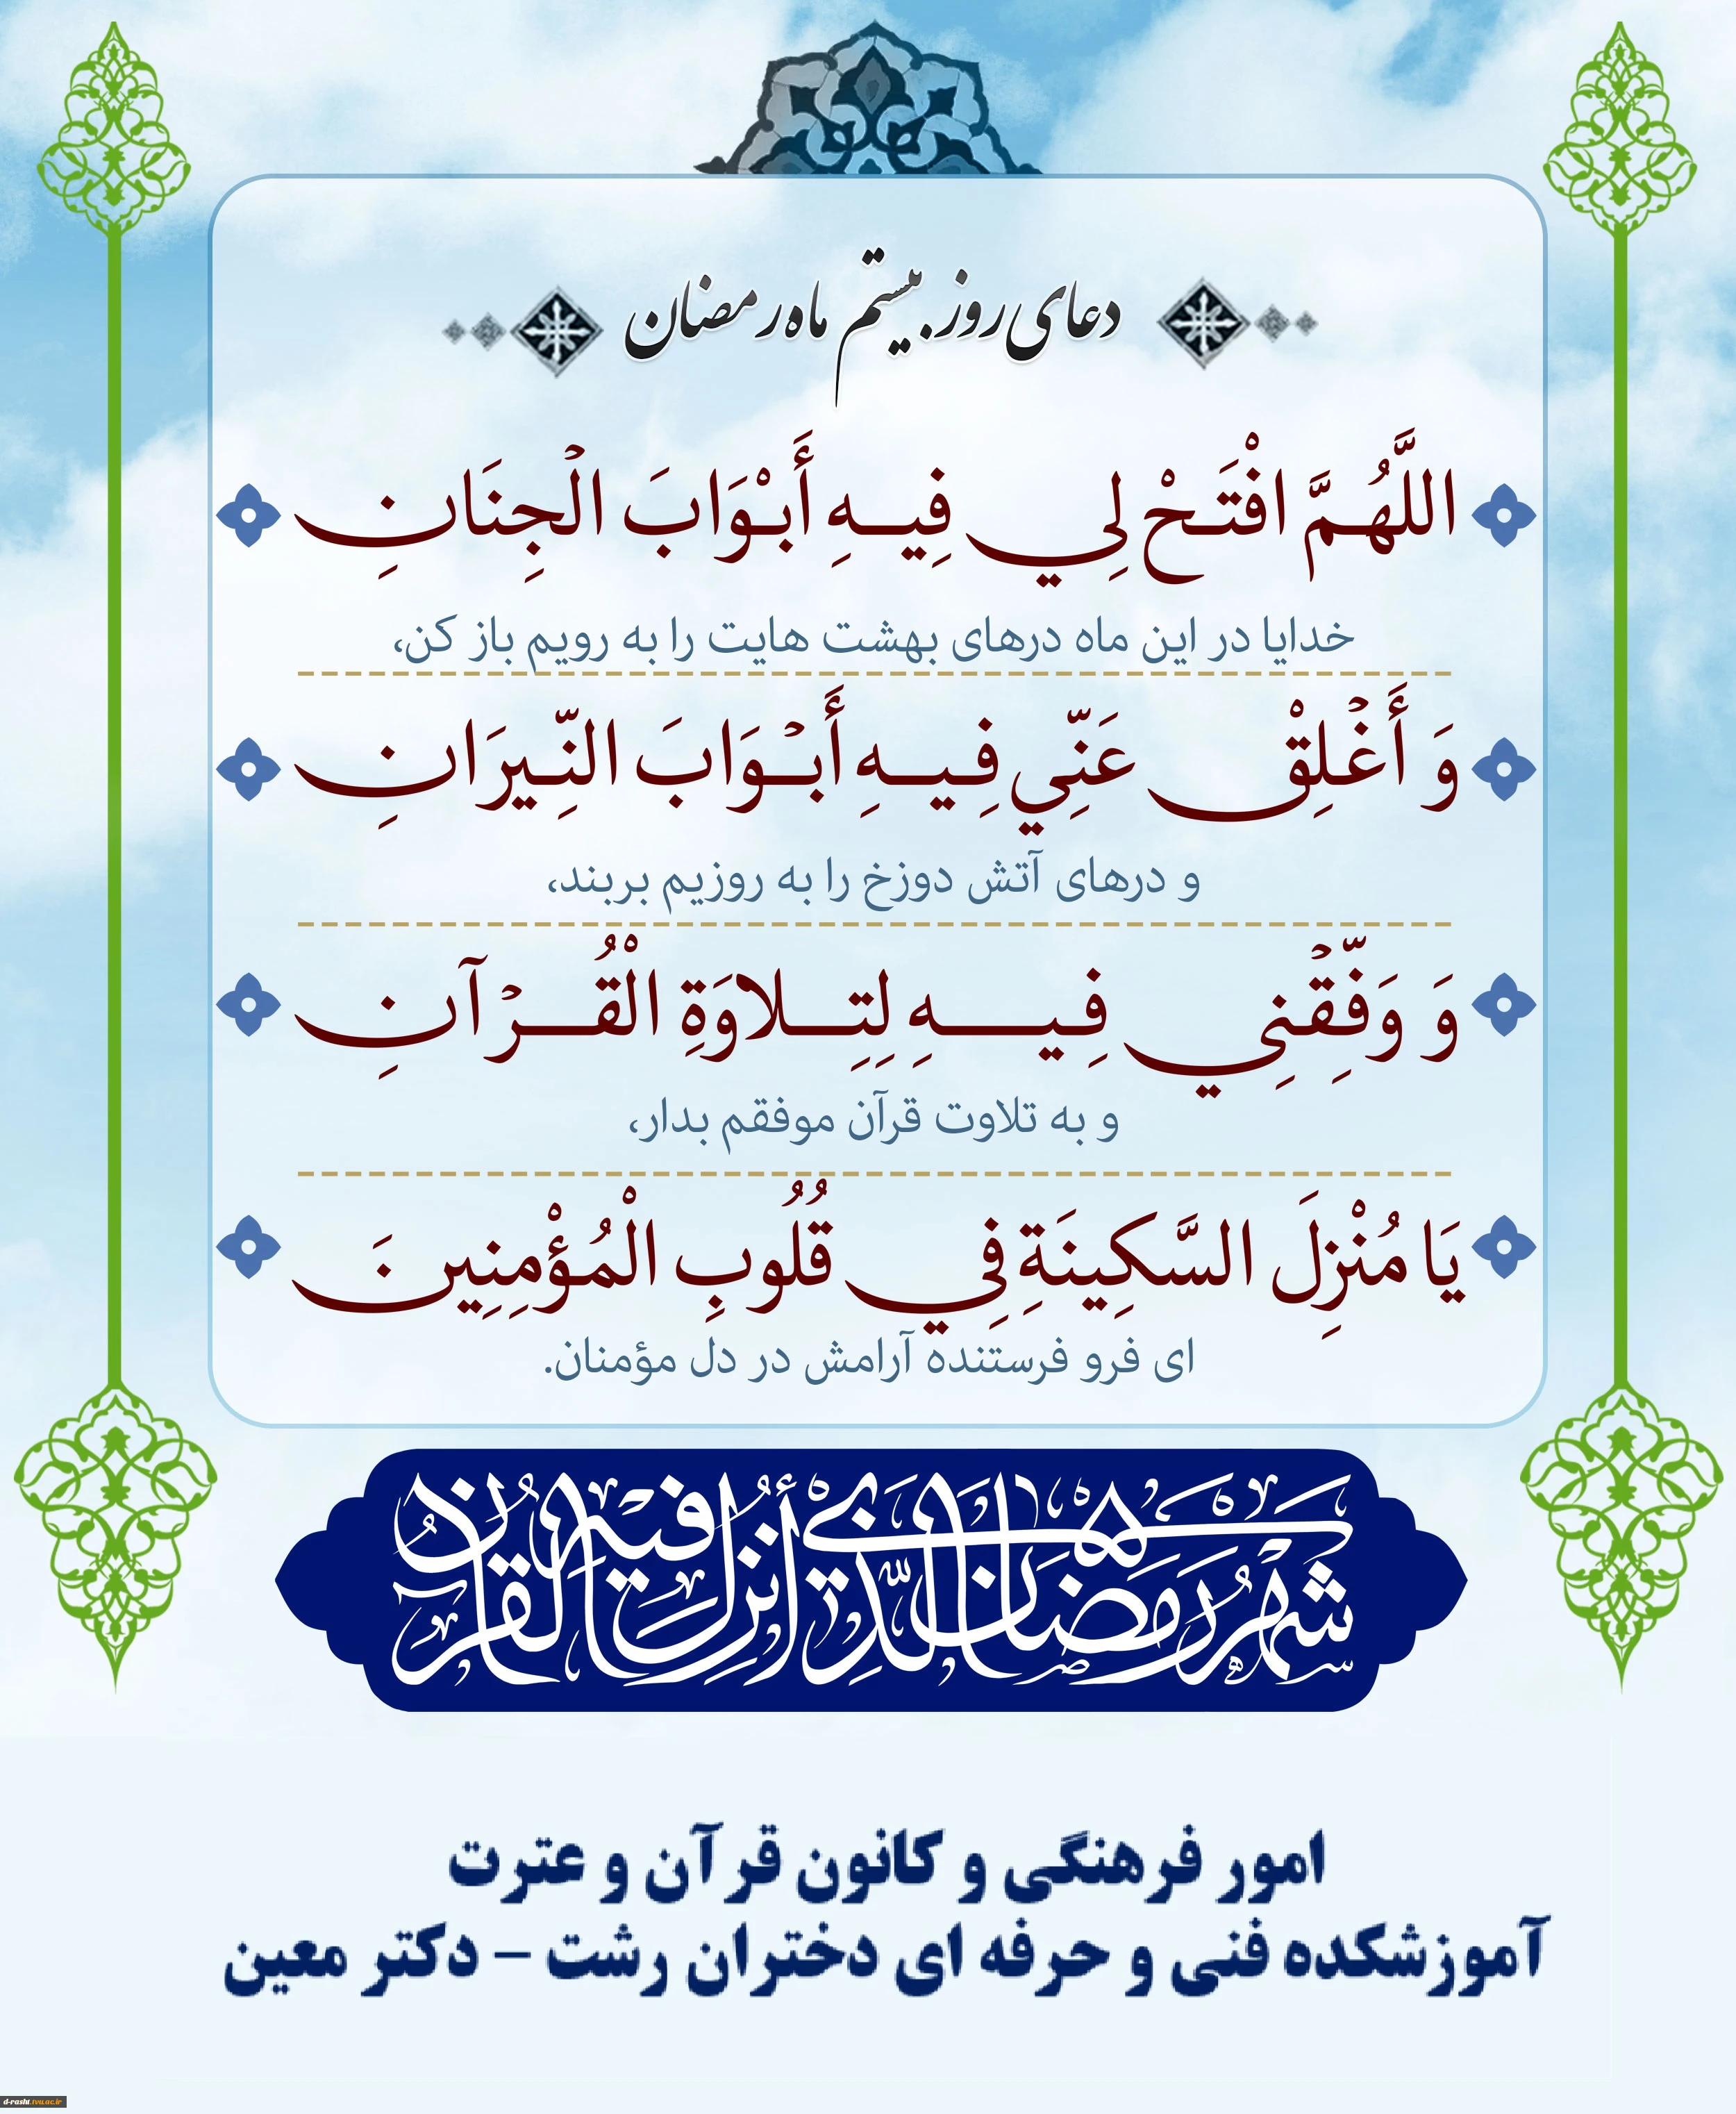 دعای روز بیستم ماه رمضان
اللَّهُمَّ افْتَحْ لِي فِيهِ أَبْوَابَ الْجِنَانِ
خدایا در این ماه درهای بهشت هایت را به رویم باز کن،
وَ أَغْلِقْ عَنِّي فِيهِ أَبْوَابَ النِّيرَانِ
و درهای آتش دوزخ را به روزیم بربند،
وَ وَفِّقْنِي فِيهِ لِتِلاوَةِ الْقُرْآنِ
و به تلاوت قرآن موفقم بدار،
يَا مُنْزِلَ السَّكِينَةِ فِي قُلُوبِ الْمُؤْمِنِينَ
ای فرو فرستنده آرامش در دل مؤمنان.
شهر رمضان الذي أنزل فيه القرآن
امور فرهنگی و کانون قرآن و عترت
آموزشکده فنی و حرفه ای دختران رشت – دکتر معین
d-rasht.tvu.ac.ir